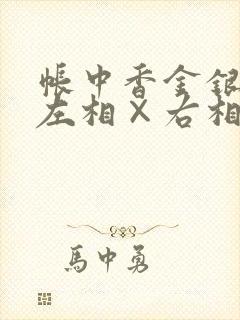 帐中香金银
左相×右相
马中勇